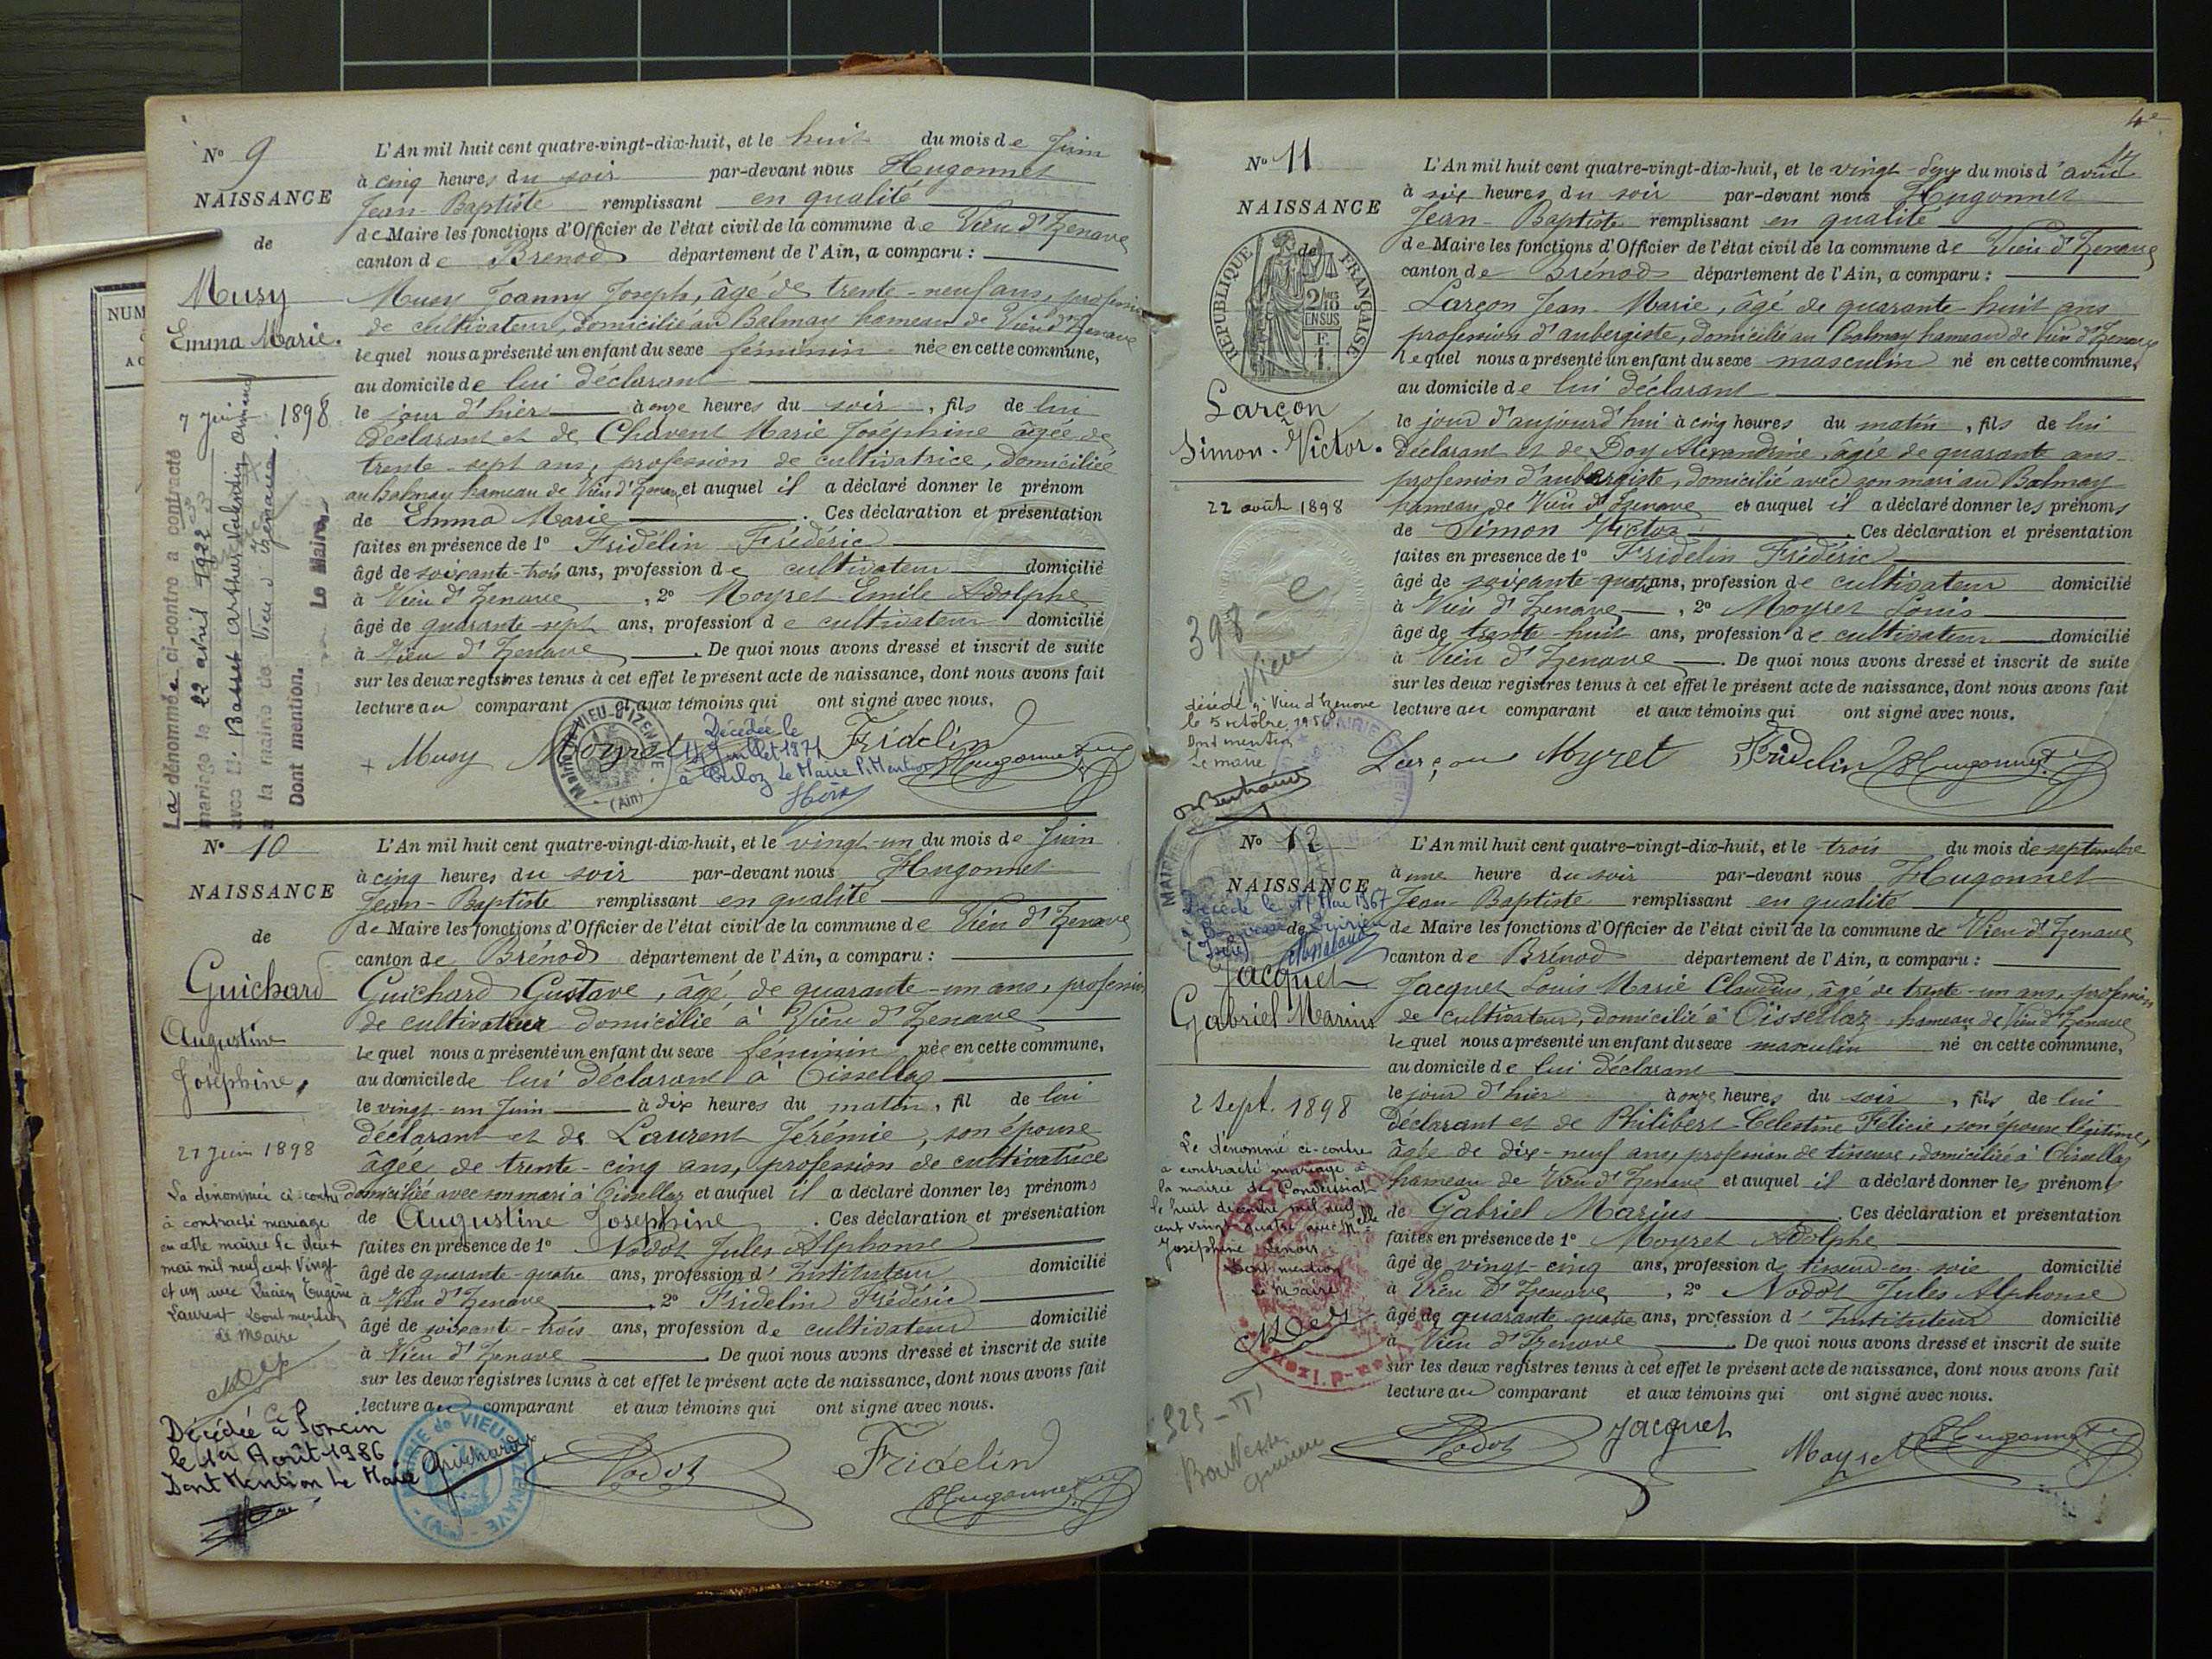 N° 9
NAISSANCE
de
Musy
Emma Marie.
7 Juin 1898
La dénommée ci-contre a contracté
mariage le 22 avril 1922
avec M. Basset Arthur Valentin Armand
à la mairie de Vieu d'Izenave.
Dont mention. Le Maire,
L'An mil huit cent quatre-vingt-dix-huit, et le huit du mois de Juin
à cinq heures du soir par-devant nous Hugonnet
Jean-Baptiste remplissant en qualité
de Maire les fonctions d'Officier de l'état civil de la commune de Vieu d'Izenave
canton de Brénod département de l'Ain, a comparu :
Musy Joanny Joseph, âgé de trente-neuf ans, profession
de cultivateur, domicilié au Balmay hameau de Vieu d'Izenave
lequel nous a présenté un enfant du sexe féminin née en cette commune,
au domicile de lui déclarant
le jour d'hier à onze heures du soir, fils de lui
déclarant et de Chavent Marie Joséphine âgée de
trente-sept ans, profession de cultivatrice, domiciliée
au Balmay hameau de Vieu d'Izenave, et auquel il a déclaré donner le prénom
de Emma Marie. Ces déclaration et présentation
faites en présence de 1° Fridelin Frédéric
âgé de soixante-trois ans, profession de cultivateur domicilié
à Vieu d'Izenave, 2° Moyret Emile Adolphe
âgé de quarante-sept ans, profession de cultivateur domicilié
à Vieu d'Izenave. De quoi nous avons dressé et inscrit de suite
sur les deux registres tenus à cet effet le présent acte de naissance, dont nous avons fait
lecture au comparant et aux témoins qui ont signé avec nous.
Musy Moyret Fridelin Hugonnet
MAIRIE DE VIEU-D'IZENAVE (Ain)
Décédée le
14 Juillet 1971
à Culoz Le Maire P. Mention
N° 10
NAISSANCE
de
Guichard
Augustine
Joséphine.
21 Juin 1898
La dénommée ci-contre
à contracté mariage
en cette mairie le deux
mai mil neuf cent vingt
et un avec Lucien Eugène
Laurent Dont mention
Le Maire
Décédée à Poncin
le 12 Août 1986
Dont Mention Le Maire
L'An mil huit cent quatre-vingt-dix-huit, et le vingt-un du mois de Juin
à cinq heures du soir par-devant nous Hugonnet
Jean-Baptiste remplissant en qualité
de Maire les fonctions d'Officier de l'état civil de la commune de Vieu d'Izenave
canton de Brénod département de l'Ain, a comparu :
Guichard Gustave, âgé de quarante-un ans, profession
de cultivateur domicilié à Vieu d'Izenave
lequel nous a présenté un enfant du sexe féminin née en cette commune,
au domicile de lui déclarant à Oisselaz
le vingt-un Juin à dix heures du matin, fil de lui
déclarant et de Laurent Jérémie, son épouse
âgée de trente-cinq ans, profession de cultivatrice
domiciliée avec son mari à Oisselaz et auquel il a déclaré donner les prénoms
de Augustine Joséphine. Ces déclaration et présentation
faites en présence de 1° Nodot Jules Alphonse
âgé de quarante-quatre ans, profession d'Instituteur domicilié
à Vieu d'Izenave, 2° Fridelin Frédéric
âgé de soixante-trois ans, profession de cultivateur domicilié
à Vieu d'Izenave. De quoi nous avons dressé et inscrit de suite
sur les deux registres tenus à cet effet le présent acte de naissance, dont nous avons fait
lecture au comparant et aux témoins qui ont signé avec nous.
MAIRIE de VIEU-D'IZENAVE
Guichard Nodot Fridelin
Hugonnet
4e
N° 11
NAISSANCE
de
RÉPUBLIQUE FRANÇAISE
Larçon
Simon-Victor.
22 août 1898
398 - e
Vieu
décédé à Vieu d'Izenave
le 5 octobre 195
Dont mention
Le maire
L'An mil huit cent quatre-vingt-dix-huit, et le vingt-deux du mois d'août
à six heures du soir par-devant nous Hugonnet
Jean-Baptiste remplissant en qualité
de Maire les fonctions d'Officier de l'état civil de la commune de Vieu d'Izenave
canton de Brénod département de l'Ain, a comparu :
Larçon Jean-Marie, âgé de quarante-huit ans
profession d'aubergiste, domicilié au Balmay hameau de Vieu d'Izenave
lequel nous a présenté un enfant du sexe masculin né en cette commune,
au domicile de lui déclarant
le jour d'aujourd'hui à cinq heures du matin, fils de lui
déclarant et de Doy Alexandrine, âgée de quarante ans
profession d'aubergiste, domicilié avec son mari au Balmay
hameau de Vieu d'Izenave et auquel il a déclaré donner les prénoms
de Simon Victor. Ces déclaration et présentation
faites en présence de 1° Fridelin Frédéric
âgé de soixante-quatre ans, profession de cultivateur domicilié
à Vieu d'Izenave, 2° Moyret Louis
âgé de trente-huit ans, profession de cultivateur domicilié
à Vieu d'Izenave. De quoi nous avons dressé et inscrit de suite
sur les deux registres tenus à cet effet le présent acte de naissance, dont nous avons fait
lecture au comparant et aux témoins qui ont signé avec nous.
Larçon Moyret Fridelin Hugonnet
N° 12
NAISSANCE
de
Décédé le 11 Mai 1967
(Isère)
Jacquet
Gabriel Marius
2 Sept. 1898
Le dénommé ci-contre
a contracté mariage à
la mairie de Condeissiat
le huit décembre mil neuf
cent vingt quatre avec Melle
Joséphine Lenoir
Dont mention
Le Maire
525 - T
L'An mil huit cent quatre-vingt-dix-huit, et le trois du mois de septembre
à une heure du soir par-devant nous Hugonnet
Jean-Baptiste remplissant en qualité
de Maire les fonctions d'Officier de l'état civil de la commune de Vieu d'Izenave
canton de Brénod département de l'Ain, a comparu :
Jacquet Louis Marie Claudius, âgé de trente-un ans, profession
de cultivateur, domicilié à Oisselaz, hameau de Vieu d'Izenave
lequel nous a présenté un enfant du sexe masculin né en cette commune,
au domicile de lui déclarant
le jour d'hier à onze heures du soir, fils de lui
déclarant et de Philibert Célestine Félicie, son épouse légitime,
âgée de dix-neuf ans, profession de tisseuse, domiciliée à Oisselaz
hameau de Vieu d'Izenave et auquel il a déclaré donner les prénoms
de Gabriel Marius. Ces déclaration et présentation
faites en présence de 1° Moyret Adolphe
âgé de vingt-cinq ans, profession de tisseur en soie domicilié
à Vieu d'Izenave, 2° Nodot Jules Alphonse
âgé de quarante quatre ans, profession d'Instituteur domicilié
à Vieu d'Izenave. De quoi nous avons dressé et inscrit de suite
sur les deux registres tenus à cet effet le présent acte de naissance, dont nous avons fait
lecture au comparant et aux témoins qui ont signé avec nous.
Nodot Jacquet Moyret Hugonnet